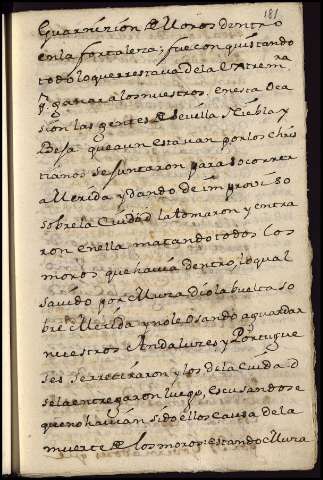 181
Guarnizion de Moros dentro
en la fortaleza; fue conquistando
todo lo que restava de la Extrem.ra
q.e ganar a los nuestros. en esta oca
sion las gentes de Sevilla, Niebla y
Beja que aun estavan por los Chris
tianos se juntaron para socorrer
a Merida y dando de improviso
sobre la Ciudad la tomaron y entra
ron en ella matando todos los
moros que havia dentro, lo qual
savido por Muza dio la buelta so
bre Merida y no le osando aguardar
nuestros Andaluzes y Portugue
ses se retiraron y los de la Ciudad
se la entregaron luego, escusandose
que no havian sido ellos causa de la
muerte de los moros: estando Muza